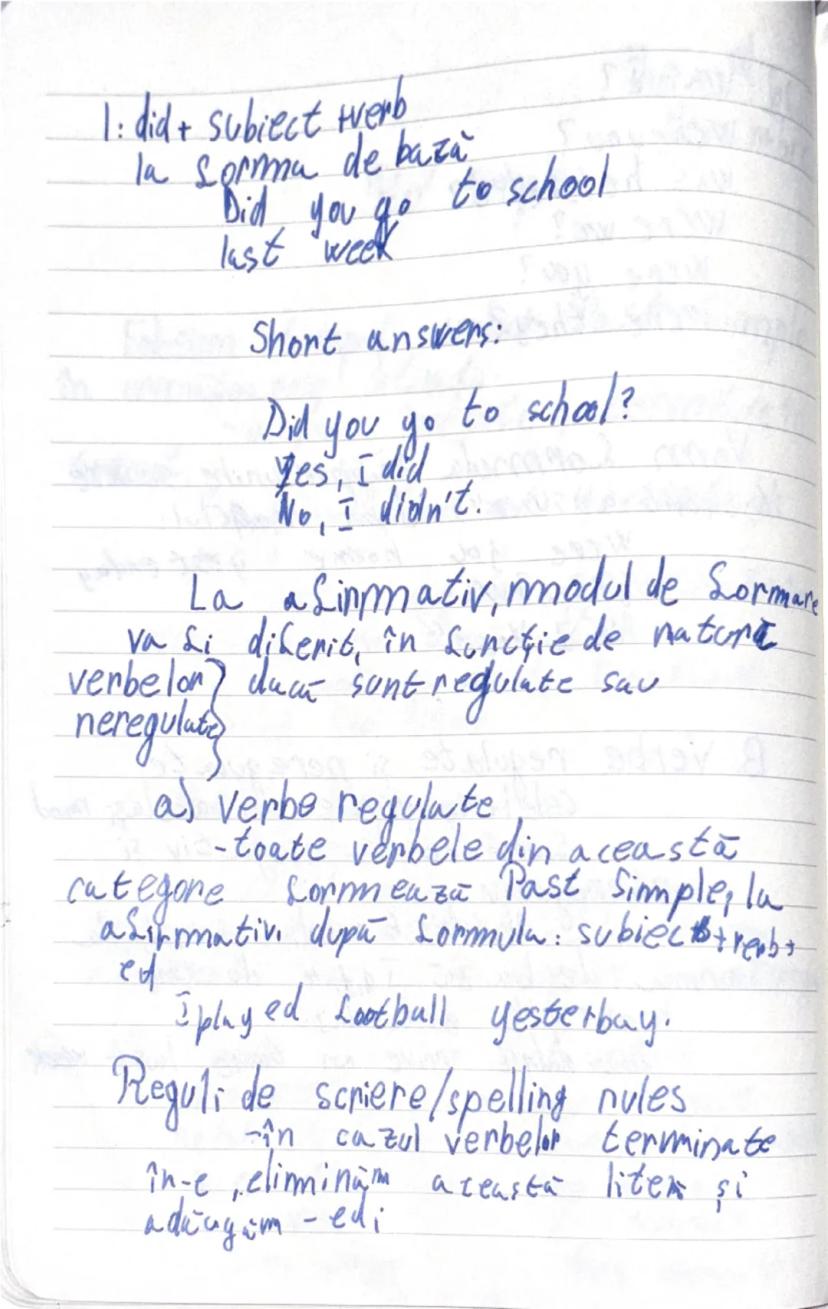 I: did + subiect +verb
la forma de bază
Did you go to school
last week
Short answers:
Did you go to school?
Yes, I did
No, I didn't.
La afirmativ, modul de formare
va fi diferit, în funcție de natură
verbelor } dacă sunt regulate sau
neregulate }
a) verbe regulate
-toate verbele din această
categore formează Past Simple, la
afirmativ, după formula: subiect + verb +
ed
I played football yesterbay.
Reguli de scriere/spelling rules
-în cazul verbelor terminate
în -e, eliminăm această literă și
adăugăm -ed;